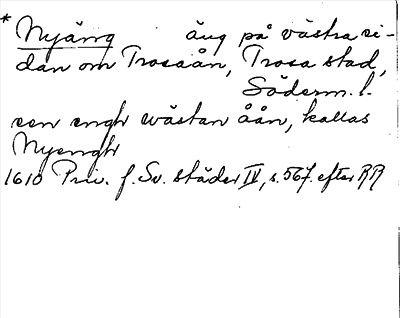 * Nyäng äng på västra si-
dan om Trosaån, Trosa stad,
Söderm. l.
een engh wästan åån, kallas
Nyengh
1610 Priv. f. Sv. städer IV, s. 567. efter RR